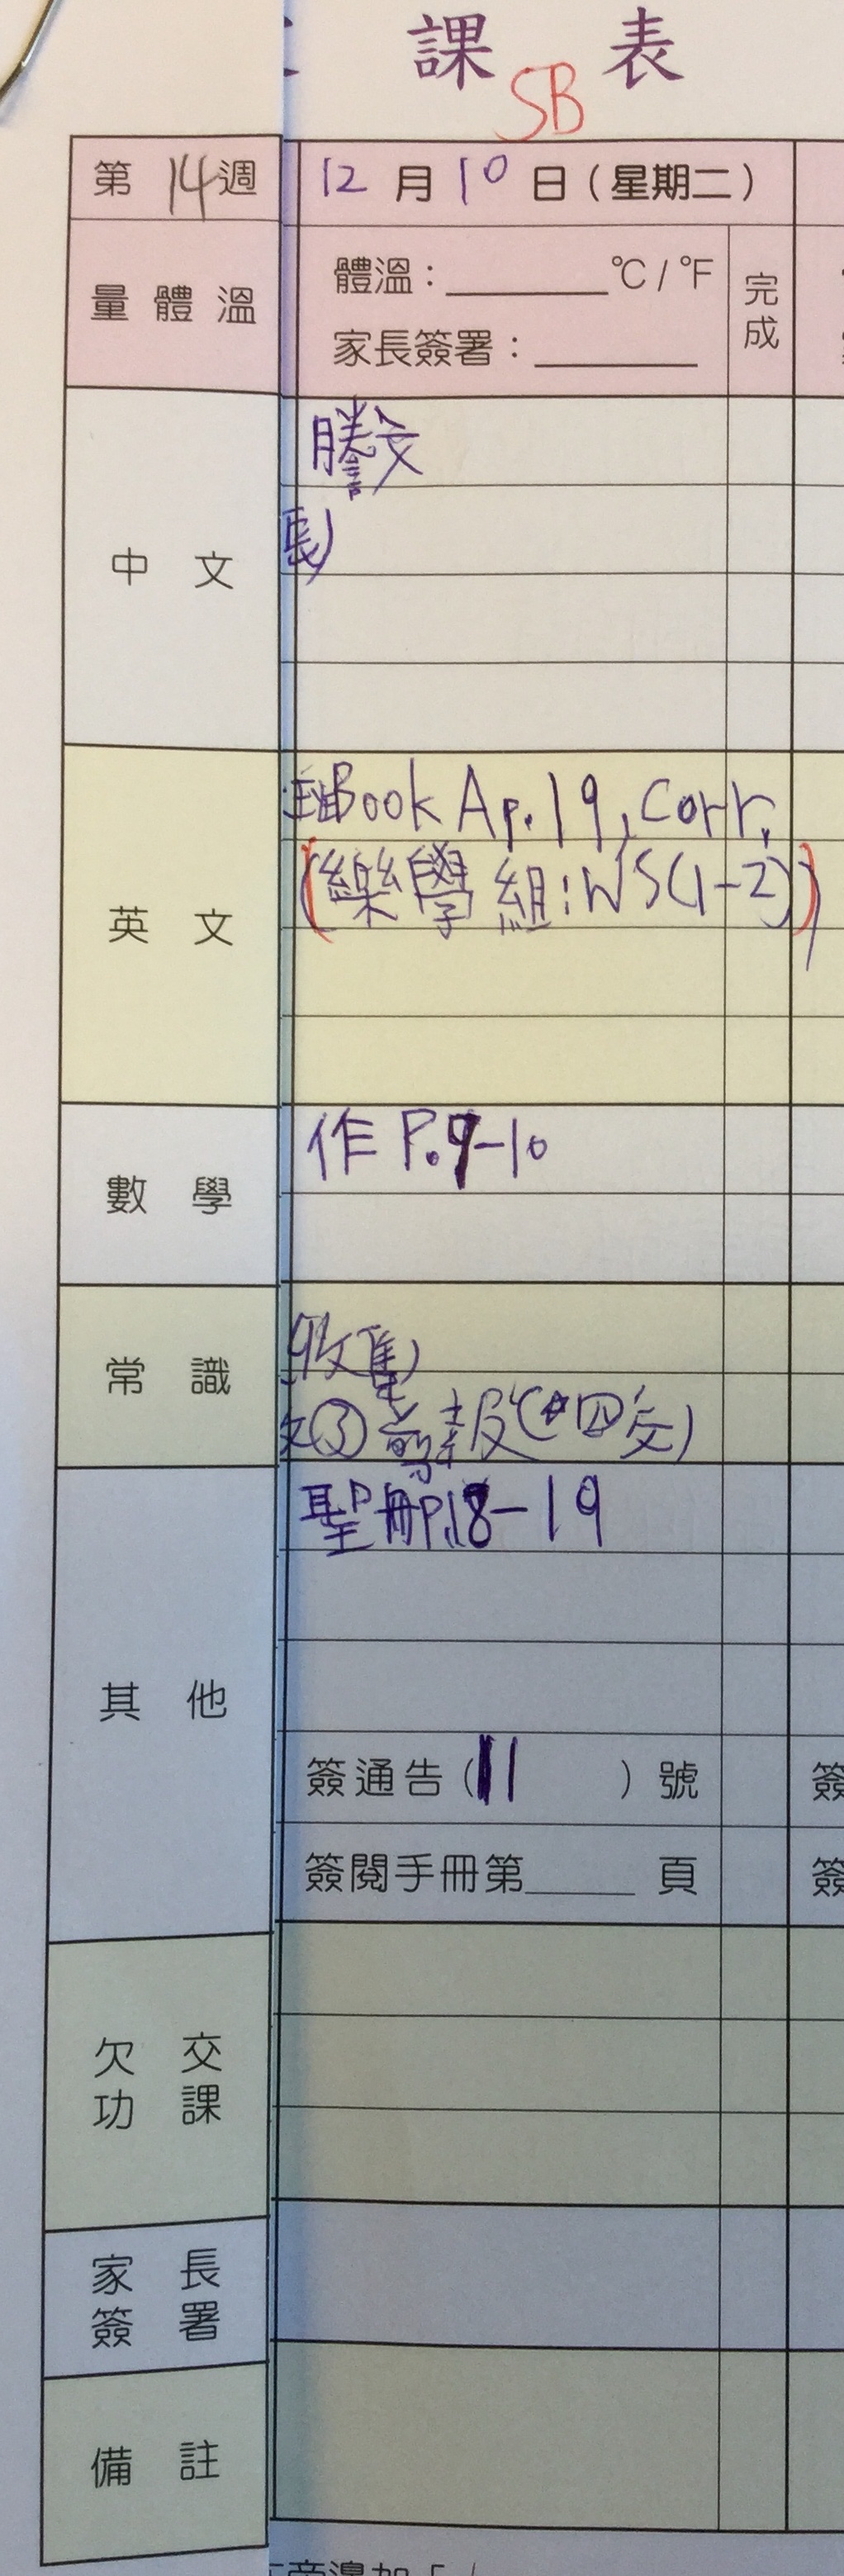 課 表
SB
第 14 週
12 月 10 日 ( 星期二 )
量 體 溫
體溫：______ ℃ / ℉
家長簽署：______
完成
中 文
謄文
長)
英 文
Book A p.19, Corr.
(樂學組:WS(1-2))
數 學
作 P.9-10
常 識
收集)
③剪報(星期四交)
其 他
聖冊p.18-19
簽通告 ( 11 ) 號
簽閱手冊第____ 頁
簽
簽
欠 交
功 課
家 長
簽 署
備 註